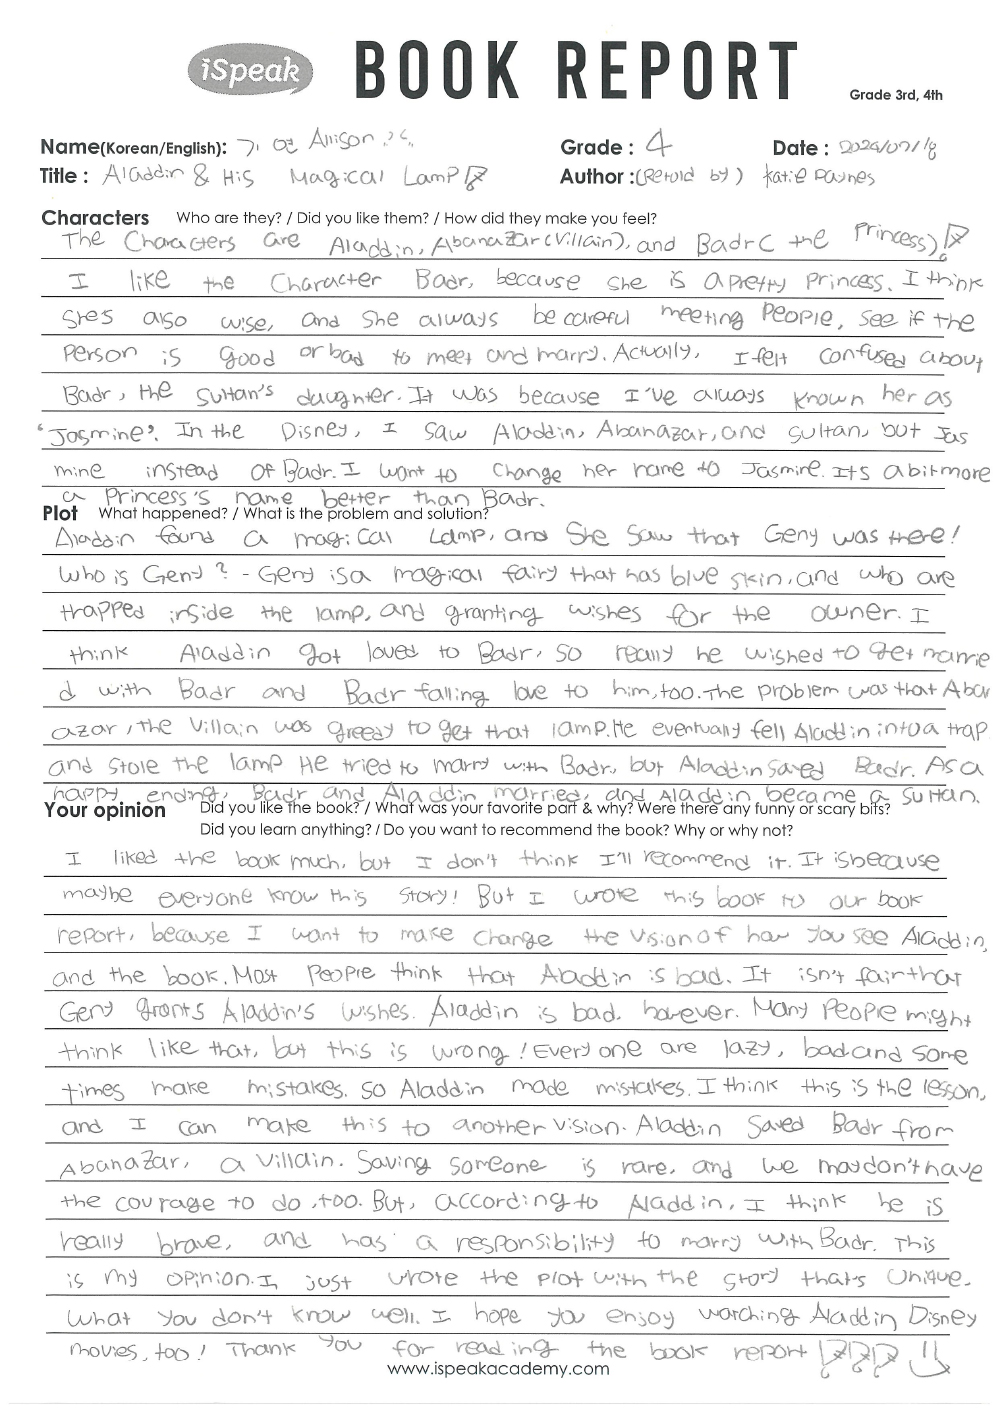 iSpeak BOOK REPORT Grade 3rd, 4th
Name(Korean/English): Allison Grade : 4 Date :
Title : Aladdin & His Magical Lamp Author : (Retold by) Katie Daynes
Characters Who are they? / Did you like them? / How did they make you feel?
The Characters are Aladdin, Abanazar(Villain), and Badr( the Princess)!
I like the Character Badr, because she is a pretty princess. I think
she's also wise, and she always be careful meeting People, see if the
Person is good or bad to meet and marry. Actually, I felt confused about
Badr, the Sultan's daughter. It was because I've always known her as
'Jasmine'. In the Disney, I saw Aladdin, Abanazar, and Sultan, but Jas
mine instead of Badr. I want to change her name to Jasmine. It's a bit more
a Princess's name better than Badr.
Plot What happened? / What is the problem and solution?
Aladdin found a magical Lamp, and She saw that Geny was there!
Who is Geny? - Geny is a magical fairy that has blue skin, and who are
trapped inside the lamp, and granting wishes for the owner. I
think Aladdin got loved to Badr, so really he wished to get marrie
d with Badr and Badr falling love to him, too. The problem was that Aban
azar, the Villain was greedy to get that lamp. He eventually fell Aladdin into a trap
and stole the lamp He tried to marry with Badr, but Aladdin saved Badr. As a
happy ending, Badr and Aladdin married, and Aladdin became a Sultan.
Your opinion Did you like the book? / What was your favorite part & why? Were there any funny or scary bits?
Did you learn anything? / Do you want to recommend the book? Why or why not?
I liked the book much, but I don't think I'll recommend it. It is because
maybe everyone know this story! But I wrote this book to our book
report, because I want to make change the vision of how you see Aladdin,
and the book. Most People think that Aladdin is bad. It isn't fair that
Geny grants Aladdin's wishes. Aladdin is bad, however. Many People might
think like that, but this is wrong! Every one are lazy, bad and some
times make mistakes. so Aladdin made mistakes. I think this is the lesson,
and I can make this to another vision. Aladdin Saved Badr from
Abanazar, a villain. Saving someone is rare, and we may don't have
the courage to do, too. But, according to Aladdin, I think he is
really brave, and has a responsibility to marry with Badr. This
is my opinion. I just wrote the plot with the story that's Unique.
What you don't know well. I hope you enjoy watching Aladdin Disney
movies, too! Thank you for reading the book report
www.ispeakacademy.com